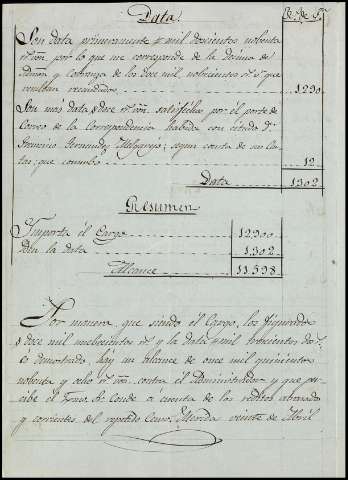 Data R.s de V.n
Son data primeramente mil doscientos noventa
r.s v.n por lo que me corresponde de la Decima de
Admon y Cobranza de los doce mil novecientos r.s v.n que
resultan recaudados 1290
Son más data doce r.s v.n satisfechos por el porte de
Correo de la Correspondencia habida con citado D.n
Fernandez Melgarejo; segun cuenta de
que 12
Data 1302
Resumen
Importa el Cargo 12900
la data 1302
Alcance 11598
Por manera, que siendo el Cargo, los figurados
doce mil novecientos r.s y la data mil trescientos dos r.s
demostrada hay un alcance de once mil quinientos
noventa y ocho r.s v.n contra el Administrador y que
el Exmo. Sr. Conde á cuenta de los reditos atrasados
y corrientes del repetido Censo. Merida veinte de Abril